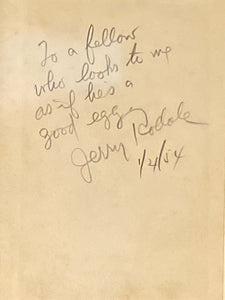 To a fellow
who looks to me
as if hes a
good egg
Jerry Kodale
1/21/54